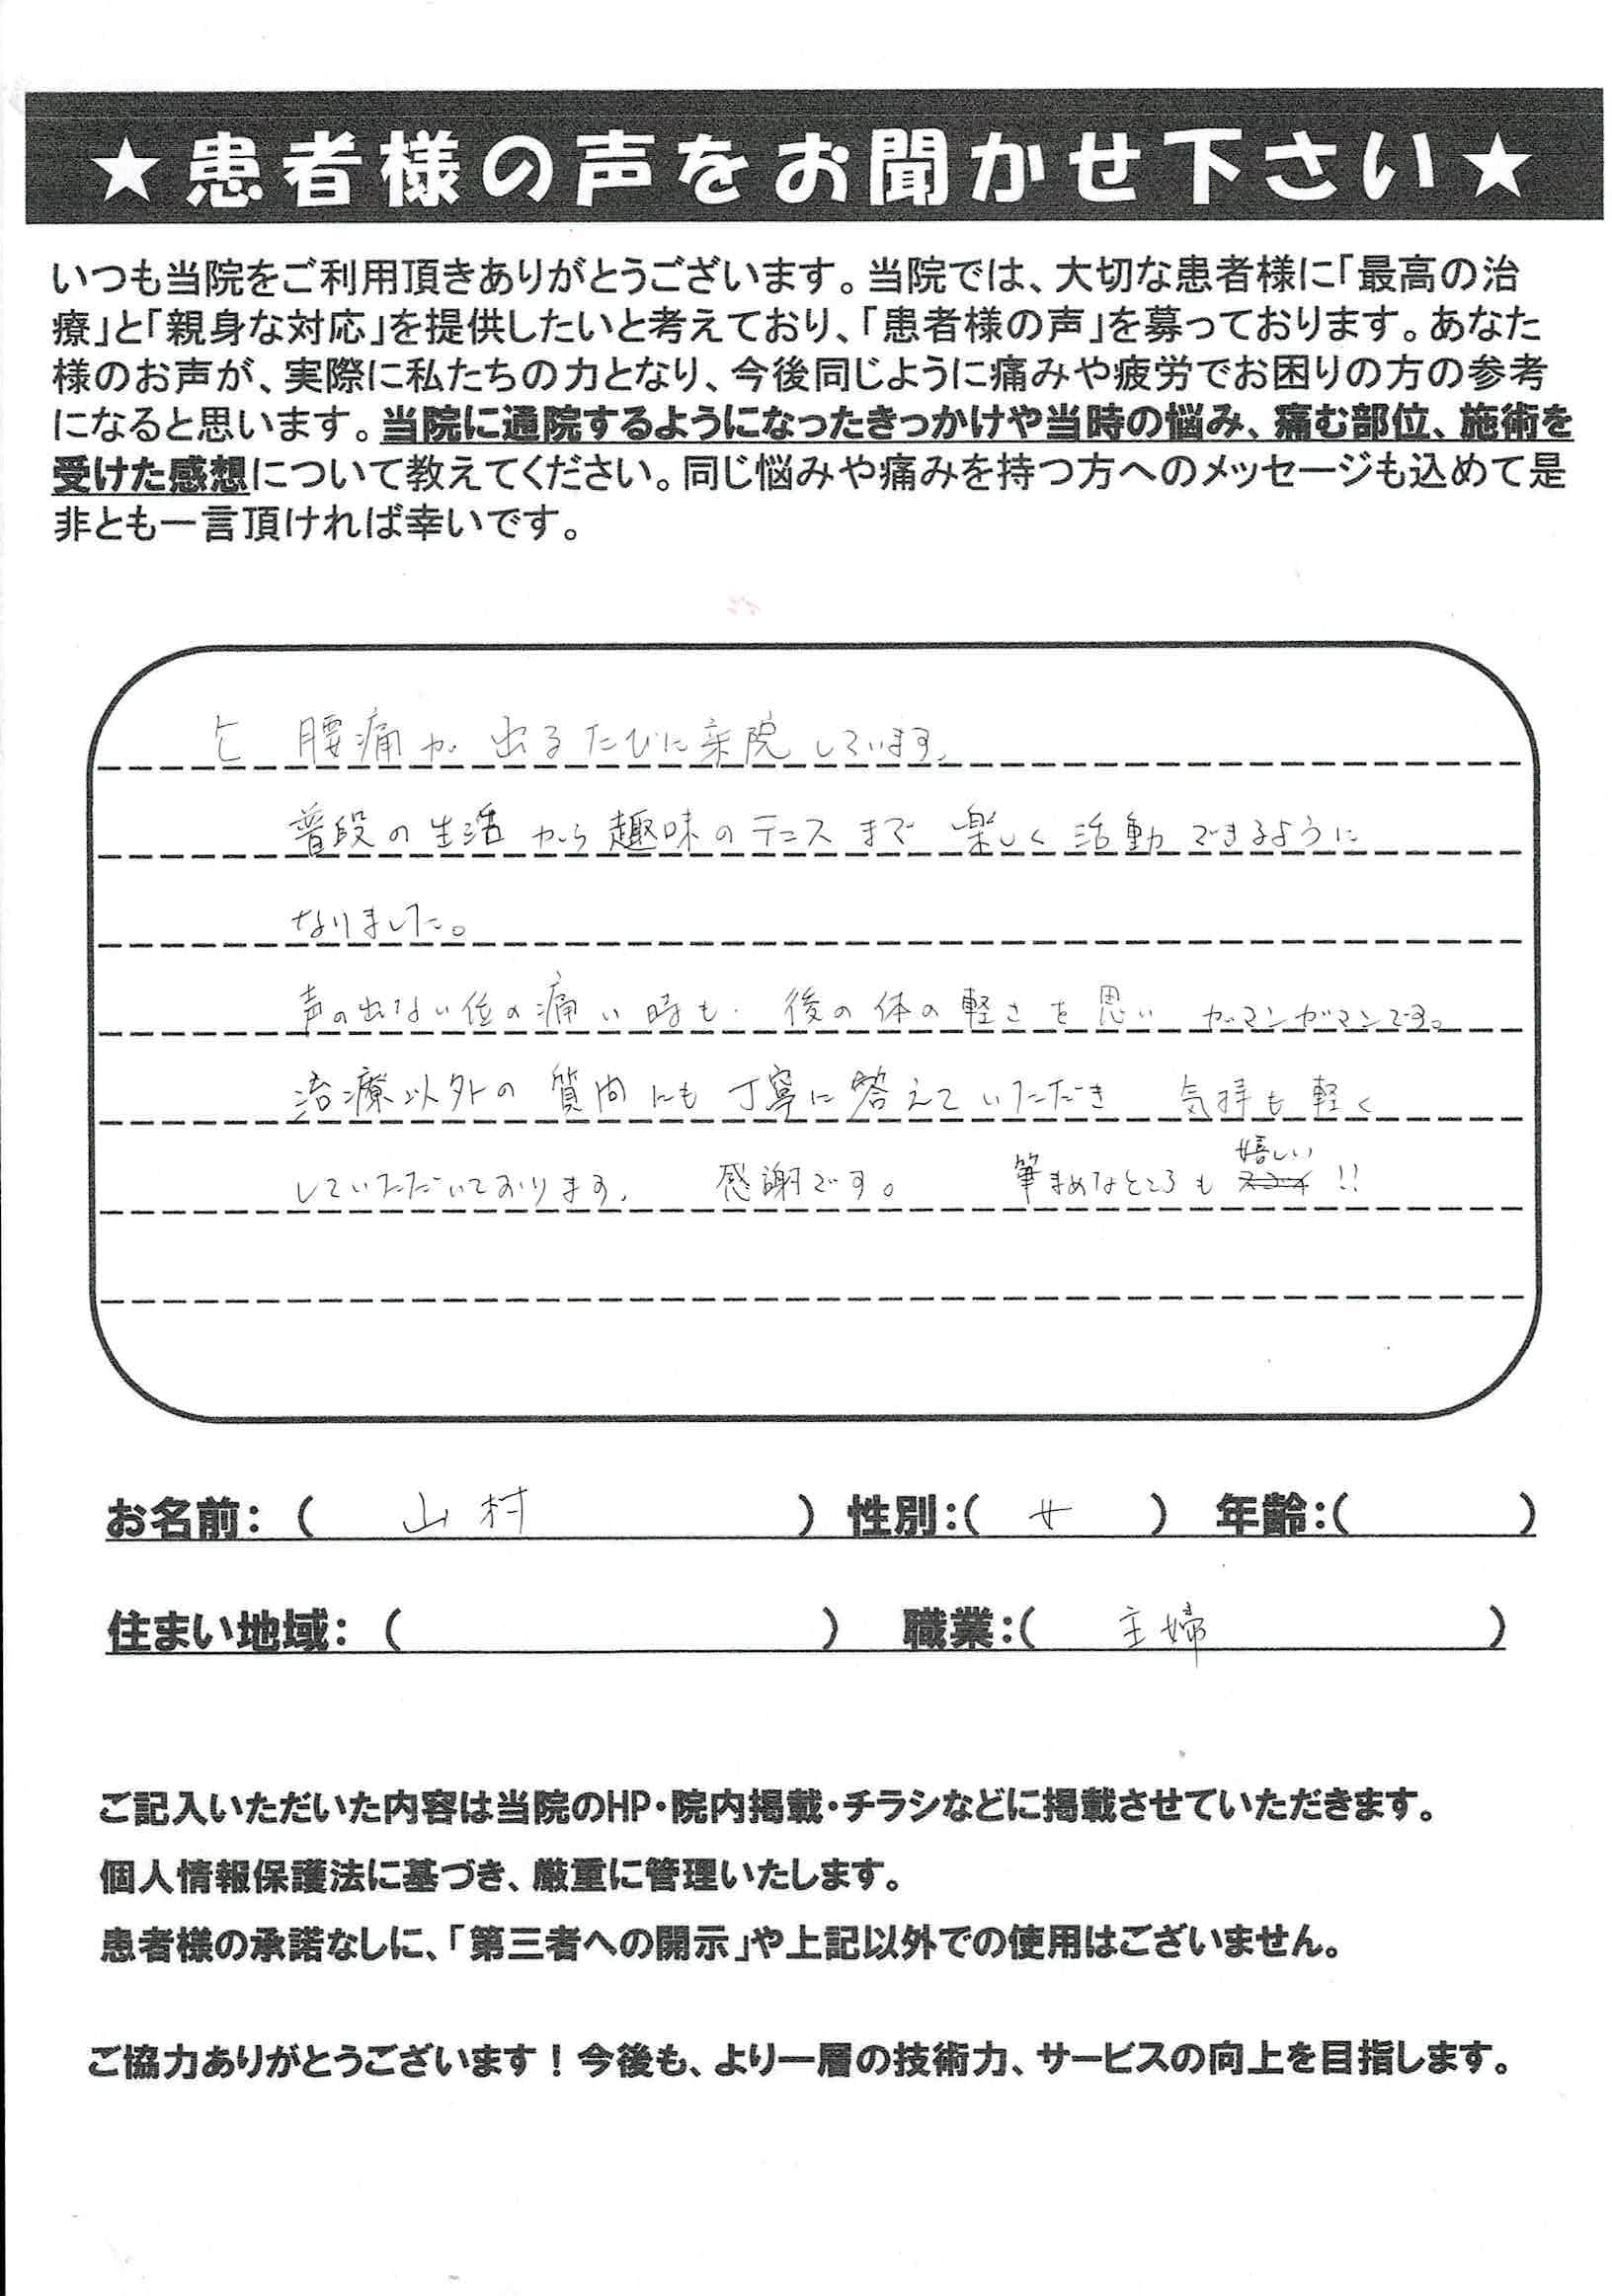 ★患者様の声をお聞かせ下さい★
いつも当院をご利用頂きありがとうございます。当院では、大切な患者様に「最高の治
療」と「親身な対応」を提供したいと考えており、「患者様の声」を募っております。あなた
様のお声が、実際に私たちの力となり、今後同じように痛みや疲労でお困りの方の参考
になると思います。当院に通院するようになったきっかけや当時の悩み、痛む部位、施術を
受けた感想について教えてください。同じ悩みや痛みを持つ方へのメッセージも込めて是
非とも一言頂ければ幸いです。
腰痛が出るたびに来院しています。
普段の生活から趣味のテニスまで楽しく活動できるように
なりました。
声の出ない位の痛い時も、後の体の軽さを思いガマンガマンです。
治療以外の質問にも丁寧に答えていただき 気持も軽く
していただいております。 感謝です。 筆まめなところも 嬉しい!!
お名前:( 山村 ) 性別:( 女 ) 年齢:( )
住まい地域:( ) 職業:( 主婦 )
ご記入いただいた内容は当院のHP・院内掲載・チラシなどに掲載させていただきます。
個人情報保護法に基づき、厳重に管理いたします。
患者様の承諾なしに、「第三者への開示」や上記以外での使用はございません。
ご協力ありがとうございます！今後も、より一層の技術力、サービスの向上を目指します。